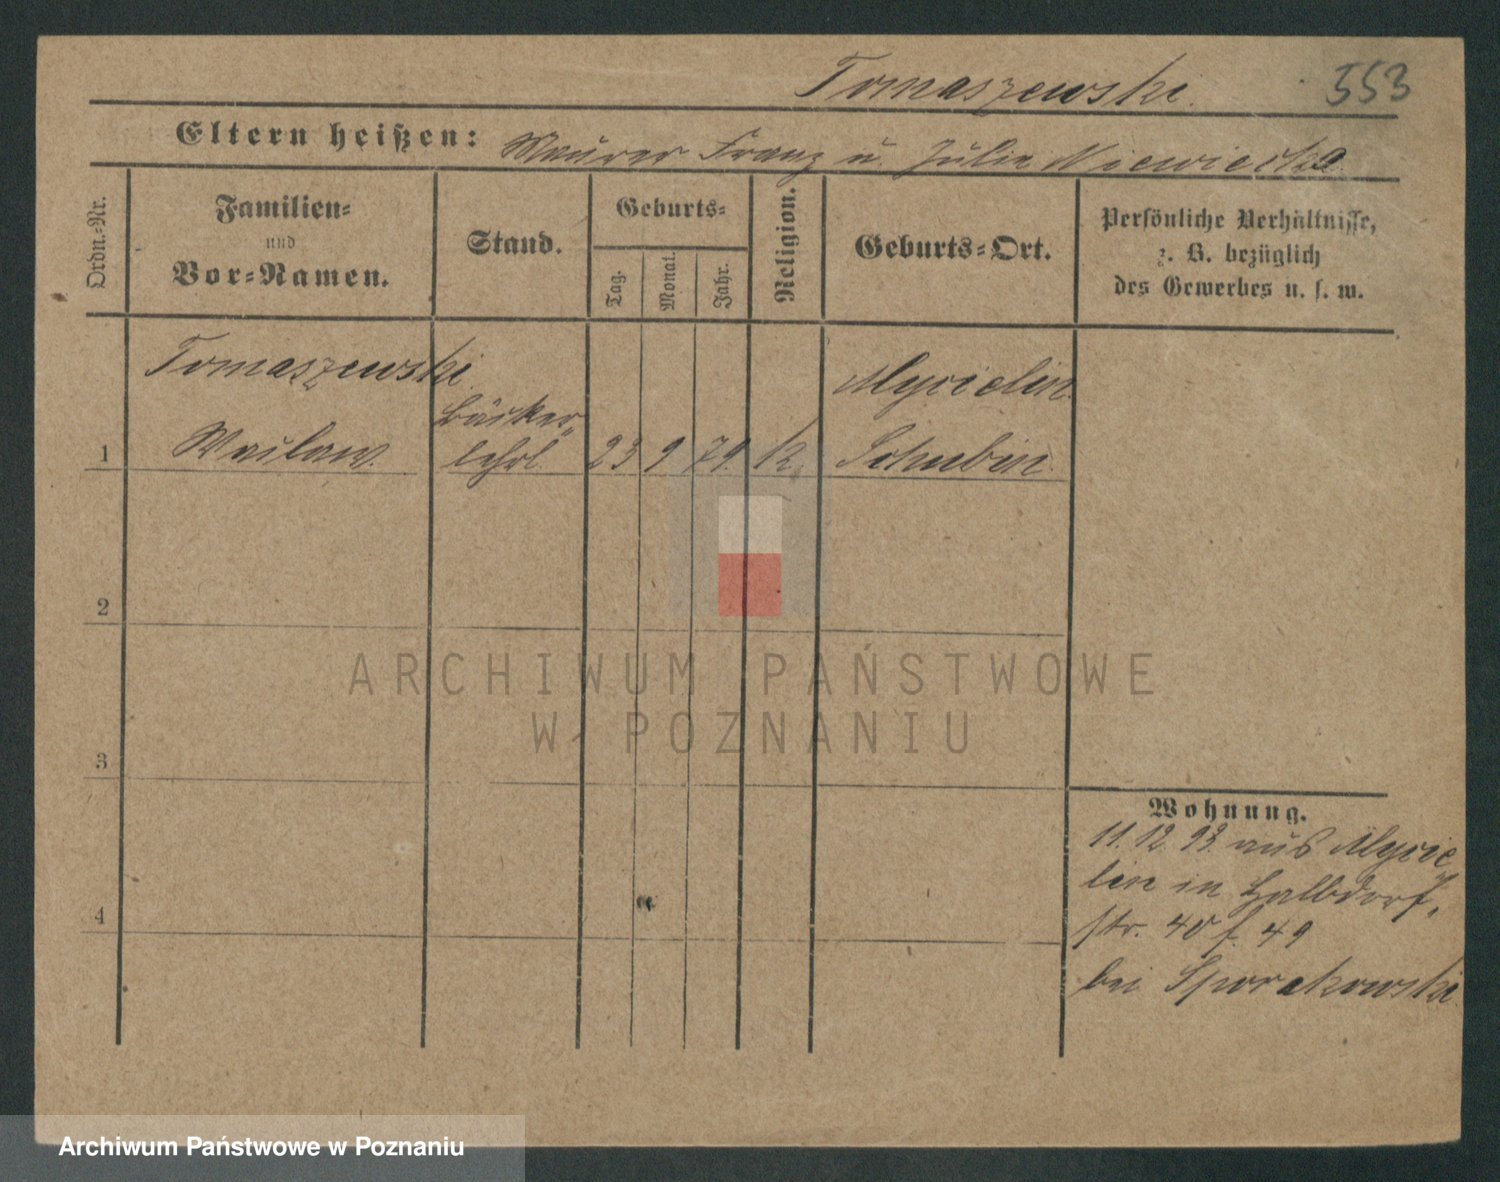 Tomaszewski. 553
Eltern heißen: Maurer Franz u. Julie Niewiecka.
Ordn.-Nr.
Familien-
und
Vor-Namen.
Stand.
Geburts-
Tag.
Monat.
Jahr.
Religion.
Geburts-Ort.
Persönliche Verhältnisse,
z. B. bezüglich
des Gewerbes u. s. w.
Tomaszewski. Mycielin.
Bäcker-
1 Waclaw. lehrl. 23 9 79. k. Schubin.
2
ARCHIWUM PAŃSTWOWE
W POZNANIU
3
Wohnung.
11. 12. 93. aus Mycie-
lin in Halbdorf-
4
str. 40 f. 49
bei Sporakowski.
Archiwum Państwowe w Poznaniu